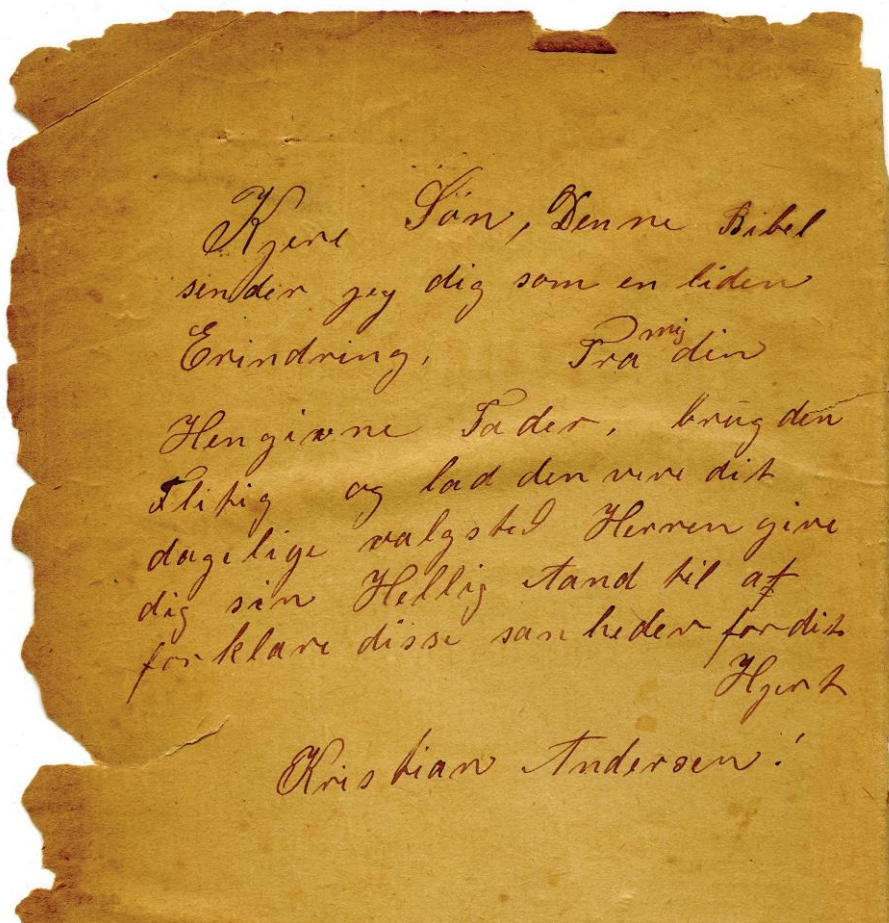 Kjere Sön, Denne Bibel
sender jeg dig som en liden
Erindring, Fra mig din
Hengivne Fader, brug den
Flitig og lad den vere dit
dagelige valgsted Herren give
dig sin Hellig Aand til at
forklare disse sanheder for dit
Hjert
Kristian Andersen!